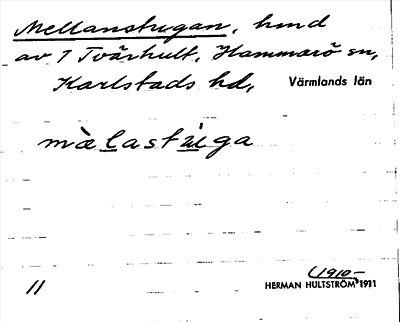 Mellanstugan, hmd
av 7 Tvärhult, Hammarö sn,
Karlstads hd, Värmlands län
mὰlastúga
(1910–
11 HERMAN HULTSTRÖM 1911